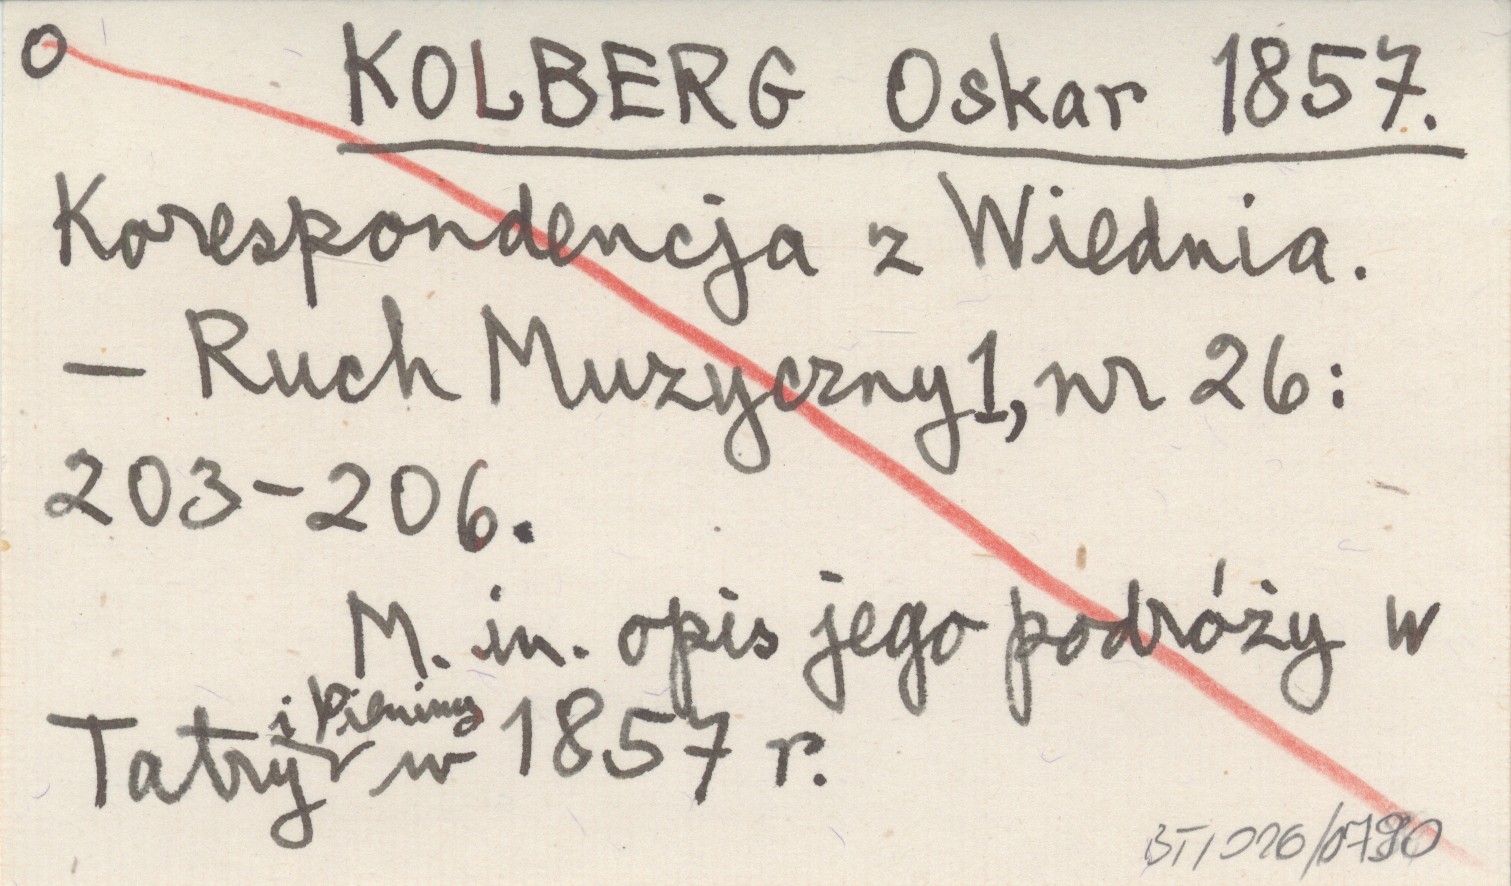 O KOLBERG Oskar 1857.
Korespondencja z Wiednia.
– Ruch Muzyczny 1, nr 26:
203–206.
M. in. opis jego podróży w
i Pieniny
Tatry w 1857 r.
BT/026/0790